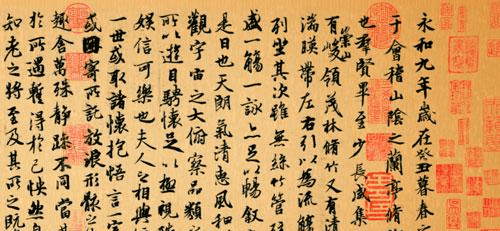 永和九年歲在癸丑暮春
于會稽山陰之蘭亭脩
也羣賢畢至少長咸集
有崇山峻領茂林脩竹又有清
湍暎帶左右引以為流觴
列坐其次雖無絲竹管
盛一觴一詠亦足以暢叙
是日也天朗氣清惠風和
觀宇宙之大俯察品類
所以遊目騁懷足以極視
娛信可樂也夫人之相與
一世或取諸懷抱悟言一室
或因寄所託放浪形骸之
趣舍萬殊靜躁不同當其
於所遇蹔得於己怏然自
知老之將至及其所之既